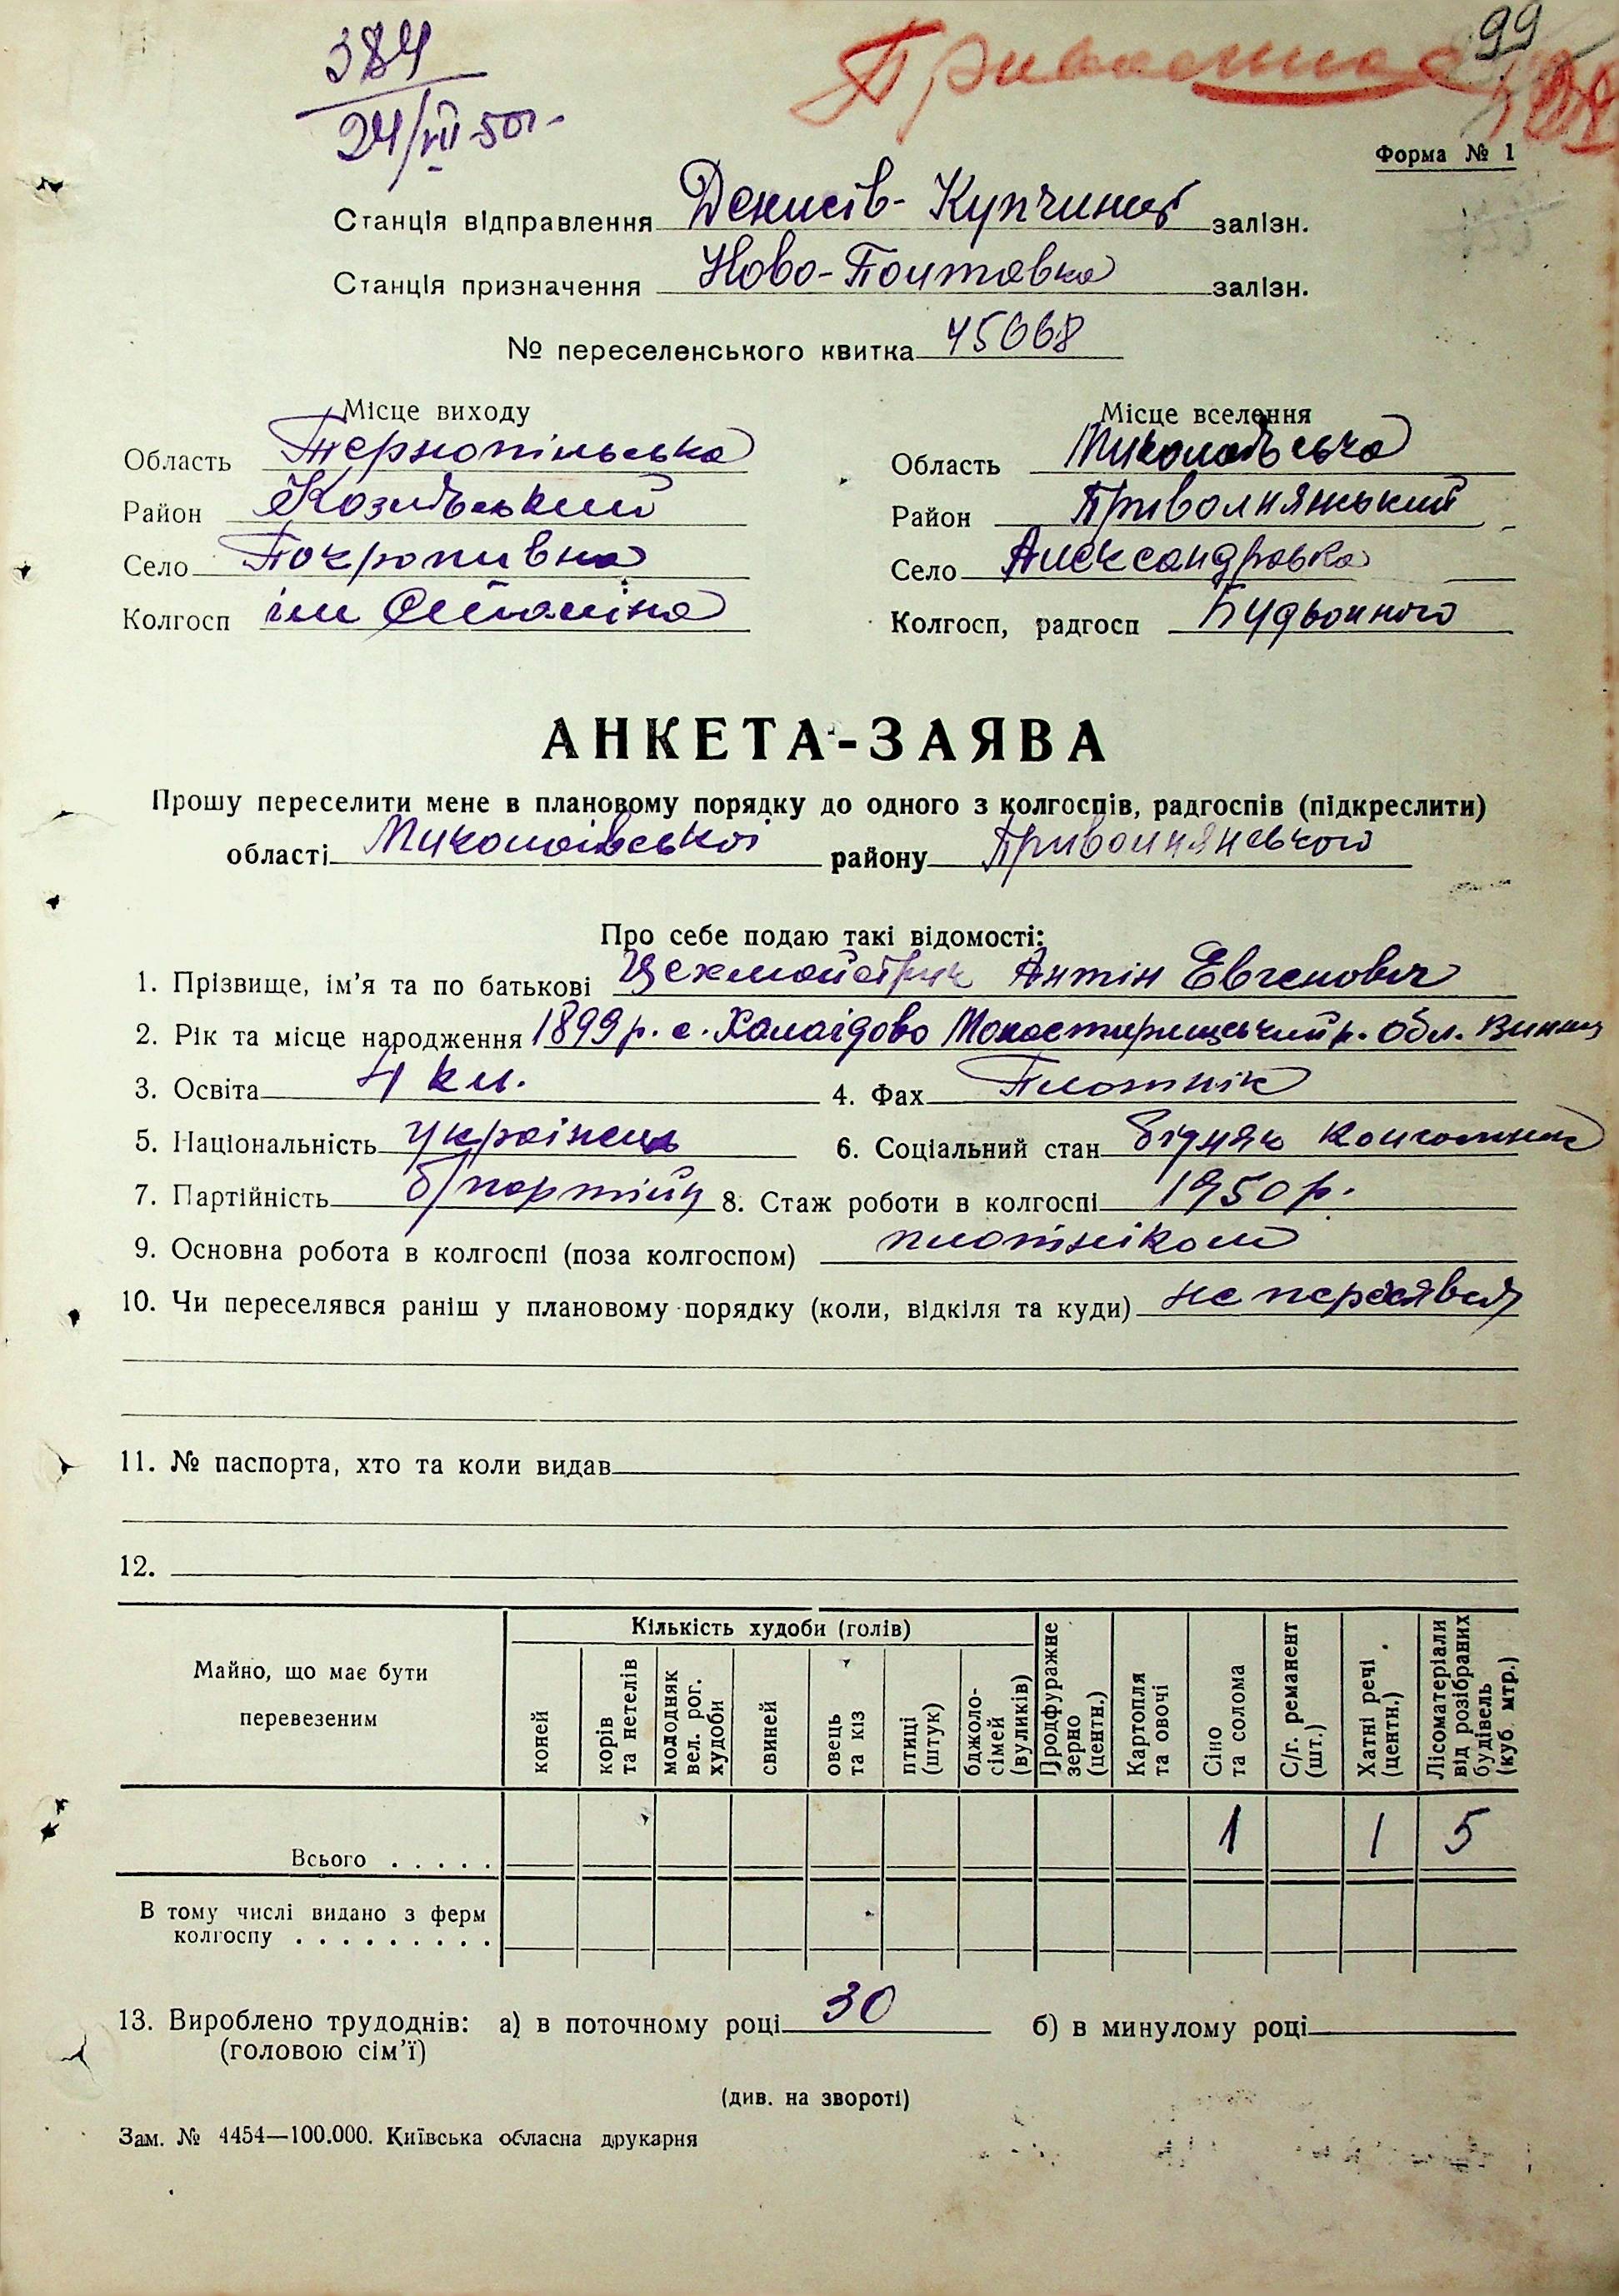 384
24/VII-50г.
99
Форма № 1
Станція відправлення Денисів-Купчинці залізн.
Станція призначення Ново-Полтавка залізн.
№ переселенського квитка 45068
Місце виходу
Область Тернопільська
Район Козлівський
Село Покропивна
Колгосп ім Сталіна
Місце вселення
Область Миколаївська
Район Привольнянський
Село Александровка
Колгосп, радгосп Будьонного
АНКЕТА-ЗАЯВА
Прошу переселити мене в плановому порядку до одного з колгоспів, радгоспів (підкреслити)
області Миколаївської району Привольнянського
Про себе подаю такі відомості:
1. Прізвище, ім'я та по батькові Цехмайструк Антін Евгенович
2. Рік та місце народження 1899 р. с. Халаідово Монастирищеський р. обл. Винниц
3. Освіта 4 кл. 4. Фах Плотнік
5. Національність українець 6. Соціальний стан бідняк колгоспник
7. Партійність б/партійн 8. Стаж роботи в колгоспі 1950 р.
9. Основна робота в колгоспі (поза колгоспом) плотніком
10. Чи переселявся раніш у плановому порядку (коли, відкіля та куди) не
11. № паспорта, хто та коли видав
12.
Майно, що має бути перевезеним
Кількість худоби (голів)
коней
корів та нетелів
молодняк вел. рог. худоби
свиней
овець та кіз
птиці (штук)
бджоло-сімей (вуликів)
Продфуражне зерно (центн.)
Картопля та овочі
Сіно та солома
С/г. реманент (шт.)
Хатні речі (центн.)
Лісоматеріали від розібраних будівель (куб. мтр.)
Всього . . . . . 1 1 5
В тому числі видано з ферм
колгоспу . . . . . . . . .
13. Вироблено трудоднів: а) в поточному році 30 б) в минулому році
(головою сім'ї)
(див. на звороті)
Зам. № 4454—100.000. Київська обласна друкарня